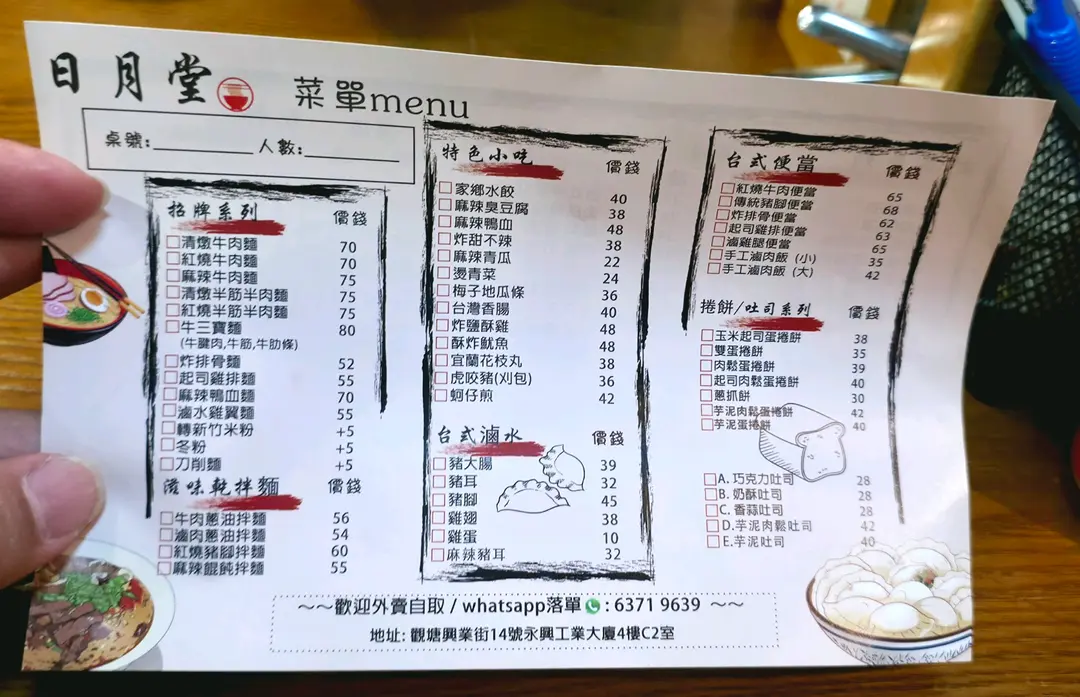 日月堂 菜單menu
桌號:________ 人數:________
招牌系列 價錢
清燉牛肉麵 70
紅燒牛肉麵 70
麻辣牛肉麵 75
清燉半筋半肉麵 75
紅燒半筋半肉麵 75
牛三寶麵 80
(牛腱肉,牛筋,牛肋條)
炸排骨麵 52
起司雞排麵 55
麻辣鴨血麵 70
滷水雞翼麵 55
轉新竹米粉 +5
冬粉 +5
刀削麵 +5
滋味乾拌麵 價錢
牛肉蔥油拌麵 56
滷肉蔥油拌麵 54
紅燒豬腳拌麵 60
麻辣餛飩拌麵 55
特色小吃 價錢
家鄉水餃 40
麻辣臭豆腐 38
麻辣鴨血 48
炸甜不辣 38
麻辣青瓜 22
燙青菜 24
梅子地瓜條 36
台灣香腸 40
炸鹽酥雞 48
酥炸魷魚 48
宜蘭花枝丸 38
虎咬豬(刈包) 36
蚵仔煎 42
台式滷水 價錢
豬大腸 39
豬耳 32
豬腳 45
雞翅 38
雞蛋 10
麻辣豬耳 32
台式便當 價錢
紅燒牛肉便當 65
傳統豬腳便當 68
炸排骨便當 62
起司雞排便當 63
滷雞腿便當 65
手工滷肉飯 (小) 35
手工滷肉飯 (大) 42
捲餅/吐司系列 價錢
玉米起司蛋捲餅 38
雙蛋捲餅 35
肉鬆蛋捲餅 39
起司肉鬆蛋捲餅 40
蔥抓餅 30
芋泥肉鬆蛋捲餅 42
芋泥蛋捲餅 40
A. 巧克力吐司 28
B. 奶酥吐司 28
C. 香蒜吐司 28
D.芋泥肉鬆吐司 42
E.芋泥吐司 40
~~歡迎外賣自取 / whatsapp落單 : 6371 9639 ~~
地址: 觀塘興業街14號永興工業大廈4樓C2室